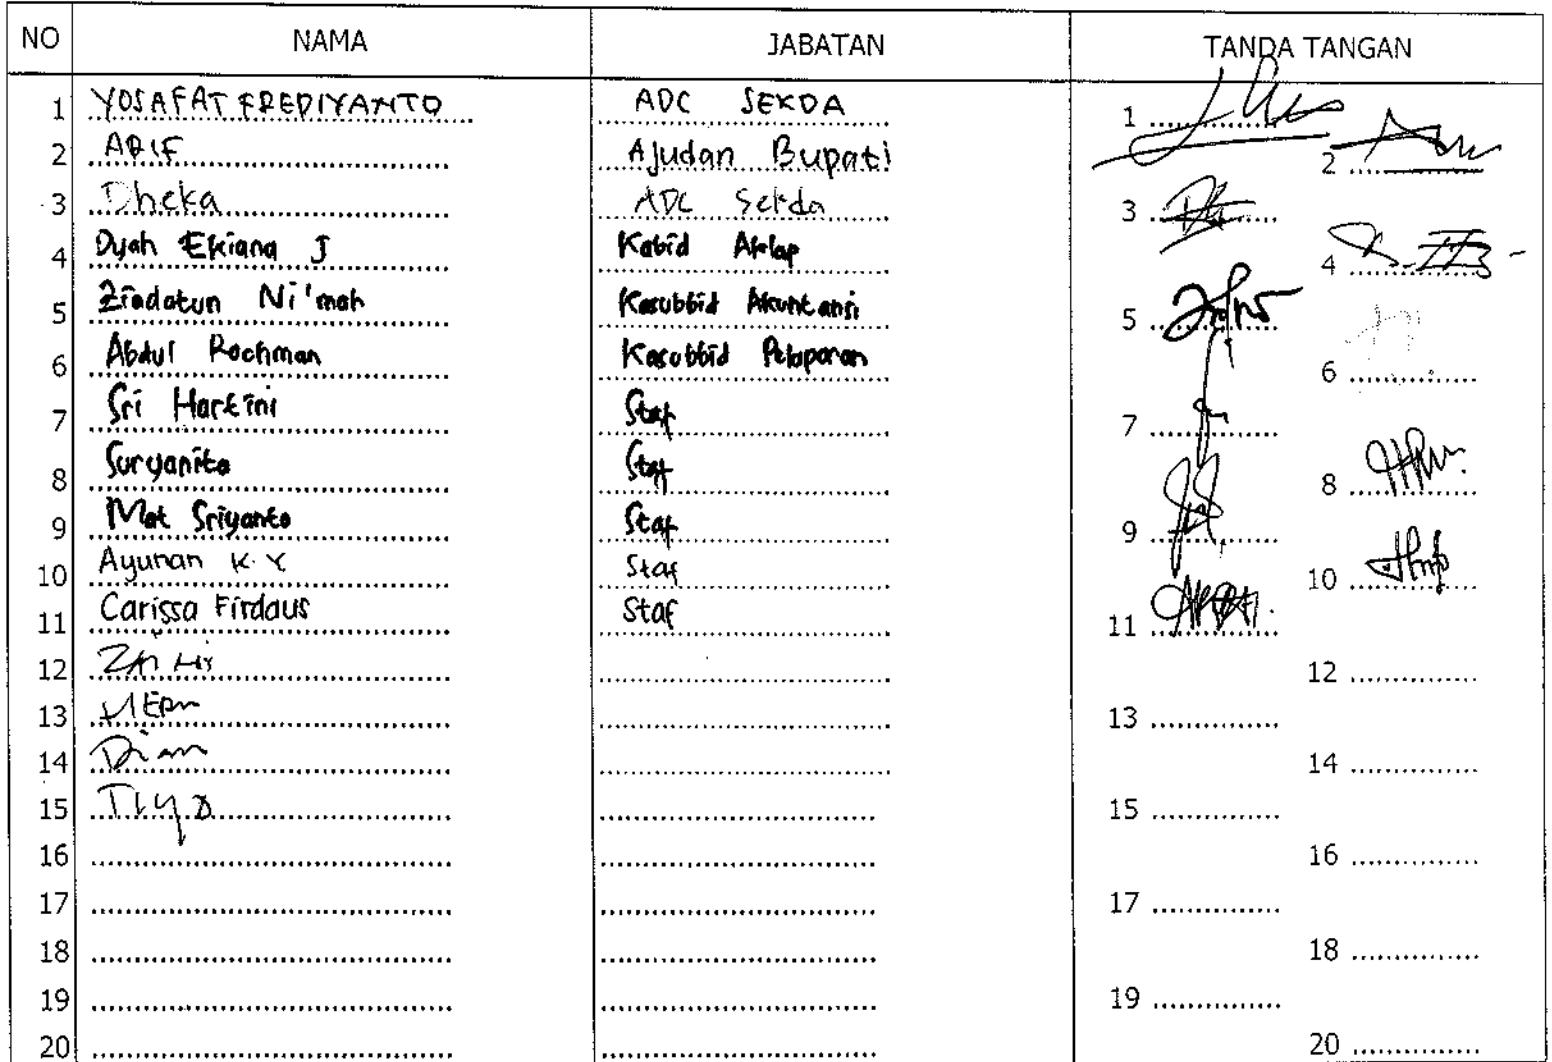 NO NAMA JABATAN TANDA TANGAN
1 YOSAFAT FREDIYANTO ADC SEKDA 1
2 ARIF Ajudan Bupati 2
3 Dheka ADC Sekda 3
4 Dyah Ekiana J Kabid Aklap 4
5 Ziadatun Ni'mah Kasubbid Akuntansi 5
6 Abdul Rochman Kasubbid Pelaporan 6
7 Sri Hartini Staf 7
8 Suryanita Staf 8
9 Mat Sriyanto Staf 9
10 Ayunan K.Y. Staf 10
11 Carissa Firdaus Staf 11
12 12
13 13
14 Dian 14
15 Tiyo 15
16 16
17 17
18 18
19 19
20 20